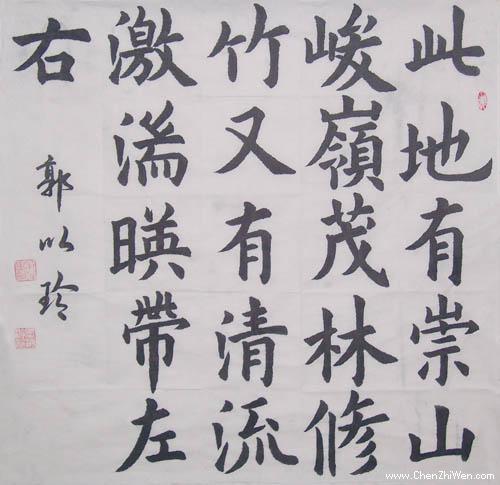 此地有崇山
峻嶺茂林修
竹又有清流
激湍暎帶左
右
郭以玲
www.ChenZhiWen.com